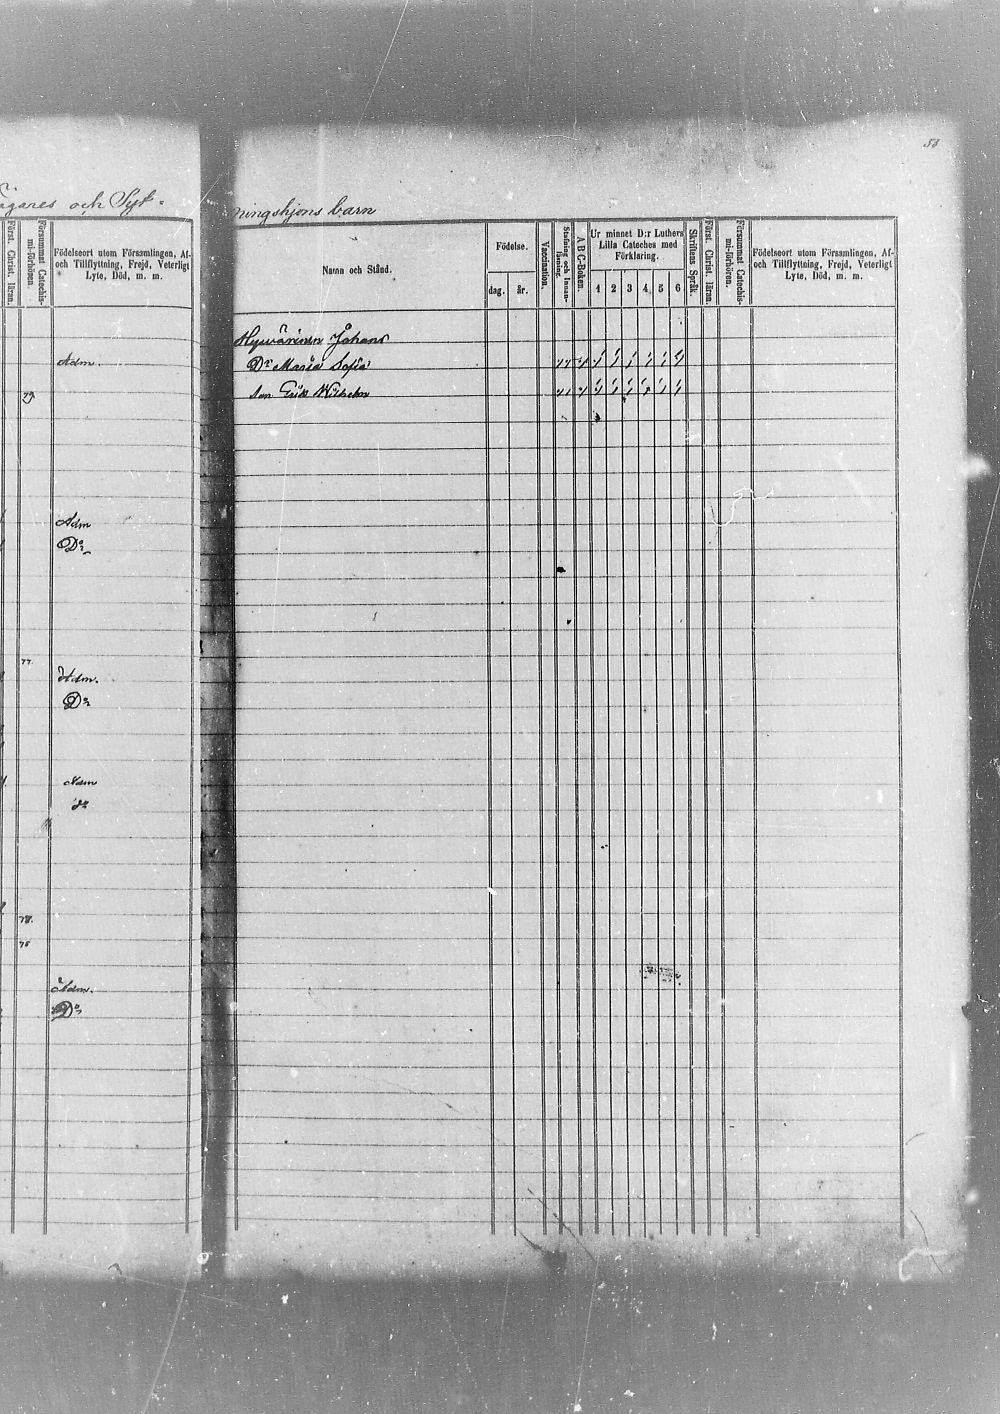 53
ägares och Syt-
ningshjons barn
Först. Christ. läran.
Försummat Catechis-
mi-förhören.
Födelseort utom Församlingen, Af-
och Tillflyttning, Frejd, Veterligt
Lyte, Död, m. m.
Adm.
79.
Adm
Do
77
Adm.
Do
Adm
do
78.
78
Adm.
Do
Namn och Stånd.
Födelse.
dag.
år.
Vaccination.
Stafning och Innan-
läsning.
A B C-Boken.
Ur minnet D:r Luthers
Lilla Cateches med
Förklaring.
1 2 3 4 5 6
Skriftens Språk.
Först. Christ. läran.
Försummat Catechis-
mi-förhören.
Födelseort utom Församlingen, Af-
och Tillflyttning, Frejd, Veterligt
Lyte, Död, m. m.
Hyvärinen Johans
Dr Maria Sofia
Son Erik Wilhelm